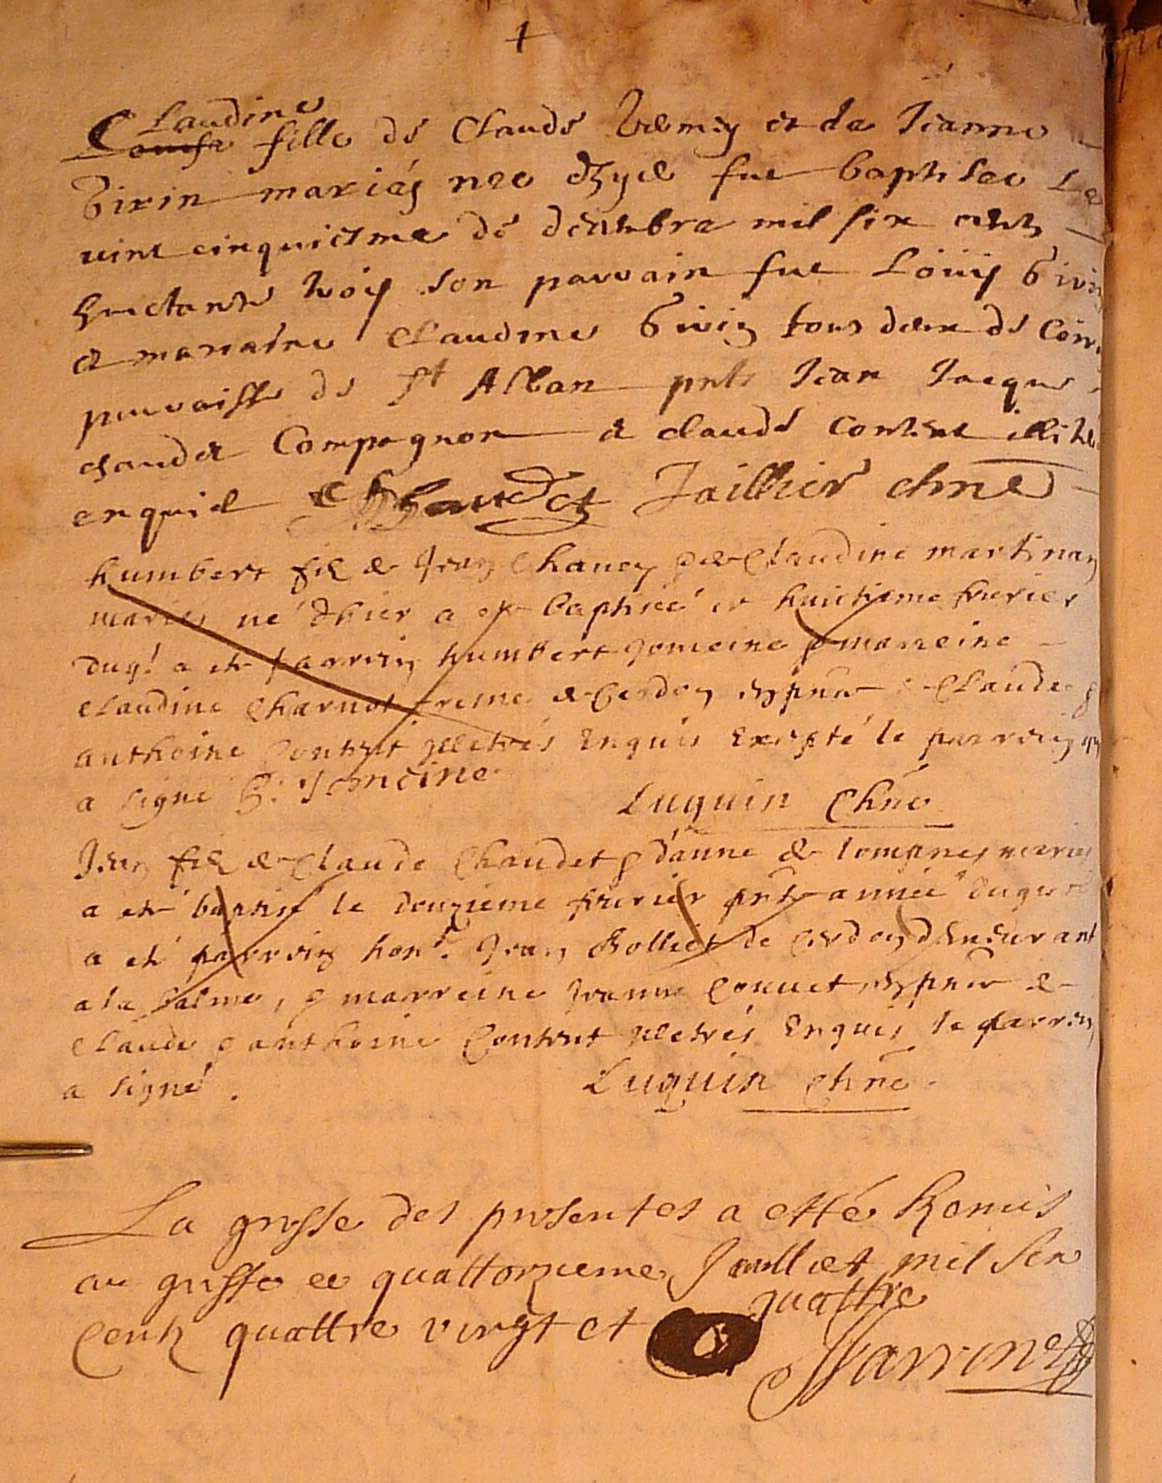 Claudine
fille de Claude et de Jeanne
Givin mariés nee d'hyer fut baptisee Le
vint cinquiesme de decembre mil six cents
huictante trois son parrain fut Louis Givin
et marraine Claudine Givin tous deux de
parroisse de St Alban pnts Jean Jacques
chaudet Compagnon et claude Content
enquis Chaudet Jaillier chne
humbert fils de Jean Chaney & de Claudine martinan
mariés né d'hier a eté baptisé ce huictieme fevrier
duql a eté parrein humbert Jomeine & marreine
claudine Charnot femme de Cerdon & Claude &
anthoine Content illetrés Enquis Excepté le parrein qui
a signé H. Jomeine
Luquin Chne
Jean fils de Claude Chaudet & d'anne de lompnes mariés
a eté baptisé le douzieme fevrier pnte année duquel
a eté parrein hon. Jean Rolliet de Cerdon demeurant
a la Balme, & marreine Jeanne Couvet, de
Claude & anthoine Content illetrés Enquis le parrein
a signé.
Luquin Chne
La grosse des presentes a esté Remis
au greffe ce quattorzieme Juilliet mil six
quattre
Centz quattre vingt et